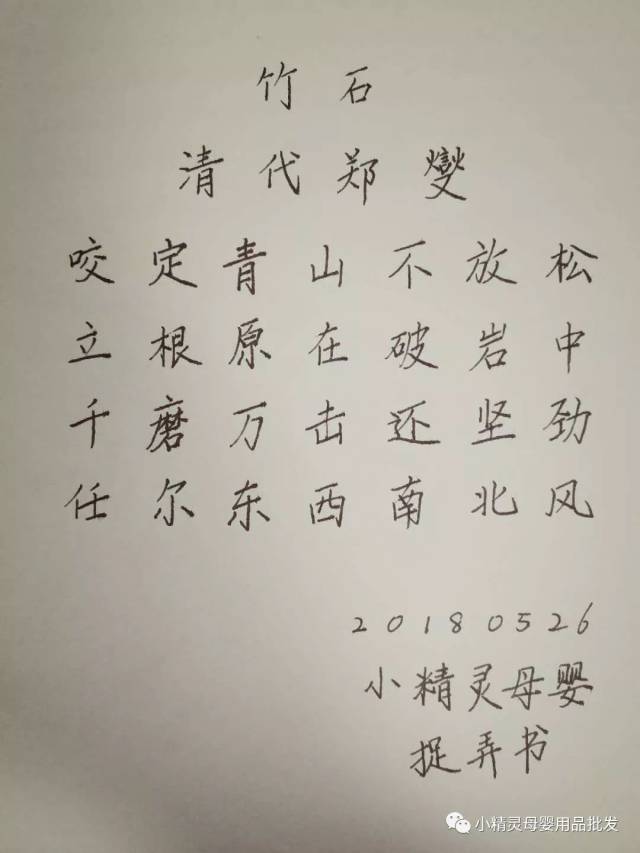 竹石
清代郑燮
咬定青山不放松
立根原在破岩中
千磨万击还坚劲
任尔东西南北风
20180526
小精灵母婴
捉弄书
小精灵母婴用品批发